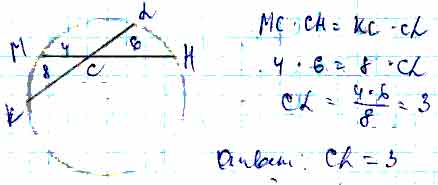 L
M 4 6 H
8 C
K
MC · CH = KC · CL
4 · 6 = 8 · CL
CL = 4·6/8 = 3
Ответ: CL = 3